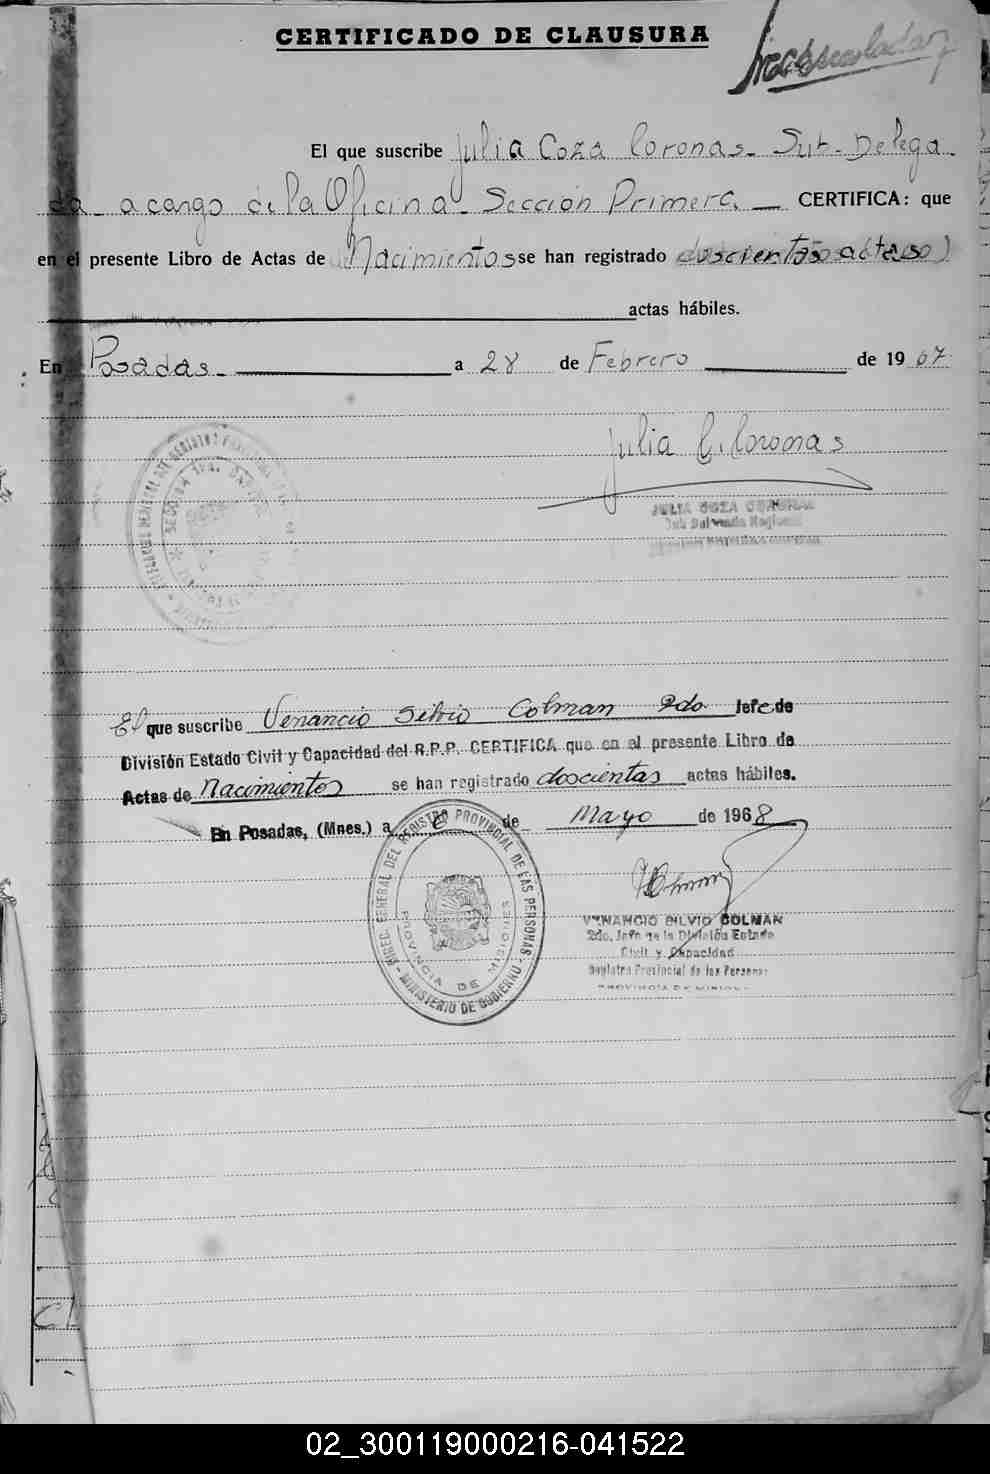 CERTIFICADO DE CLAUSURA
El que suscribe Julia Coza Coronas - Sub-Delega-
da - a cargo de la Oficina - Sección Primera. — CERTIFICA: que
en el presente Libro de Actas de Nacimientos se han registrado doscientas actas)
actas hábiles.
En Posadas - a 28 de Febrero de 1967
Julia C. Coronas
JULIA COZA CORONAS
El que suscribe Venancio Silvio Colman 2do. Jefe de
División Estado Civil y Capacidad del R.P.P. CERTIFICA que en el presente Libro de
Actas de Nacimientos se han registrado doscientas actas hábiles.
En Posadas, (Mnes.) a de Mayo de 1968
DIREC. GENERAL DEL REGISTRO PROVINCIAL DE LAS PERSONAS - MINISTERIO DE GOBIERNO -
PROVINCIA DE MISIONES
VENANCIO SILVIO COLMAN
2do. Jefe de la División Estado
Civil y Capacidad
Registro Provincial de las Personas
PROVINCIA DE MISIONES
02_300119000216-041522